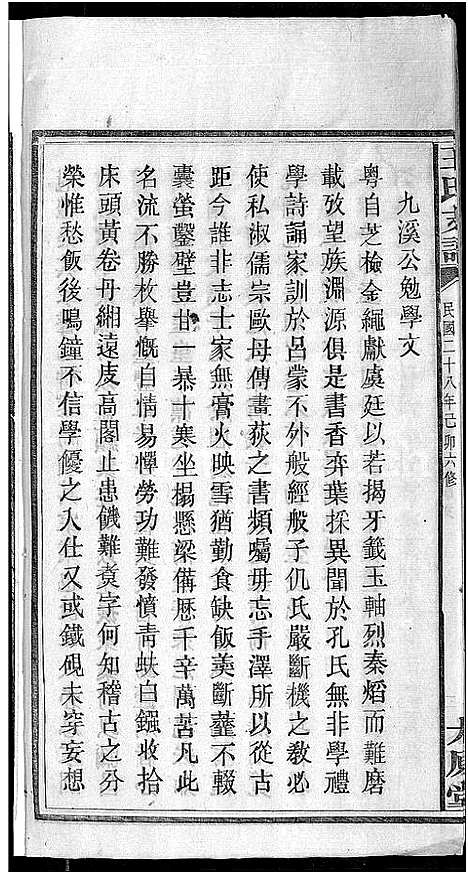 王氏支譜
民國二十八年己卯六修
太原堂
九溪公勉學文
粵自芝檢金繩獻虞廷以若揭牙籤玉軸烈秦熖而難磨
載攷望族淵源俱是書香弈葉採異聞於孔氏無非學禮
學詩誦家訓於呂蒙不外般經般子仉氏嚴斷機之教必
使私淑儒宗歐母傳畫荻之書頻囑毋忘手澤所以從古
距今誰非志士家無膏火映雪猶勤食缺飯羙斷虀不輟
囊螢鑿壁豈甘一暴十寒坐榻懸梁備歷千辛萬苦凡此
名流不勝枚舉慨自情易憚勞功難發憤靑蚨白鏹收拾
床頭黃卷丹緗遠庋高閣止患饑難煑字何知稽古之分
榮惟愁飯後鳴鐘不信學優之入仕又或鐵硯未穿妄想